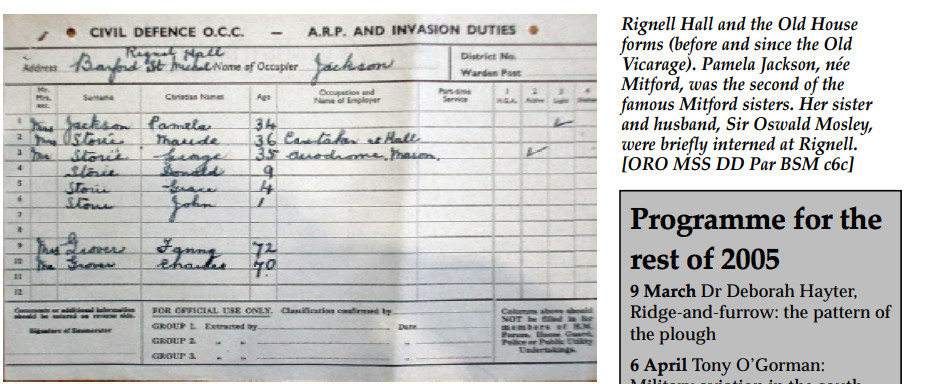 CIVIL DEFENCE O.C.C. — A.R.P. AND INVASION DUTIES
Rignel Hall
Address Barford St Michel Name of Occupier Jackson
District No.
Warden Post
Mr. Mrs. etc. Surname Christian Names Age Occupation and Name of Employer Part-time Service 1 2 3 4
1 Mrs Jackson Pamela 34
2 Mrs Storie Maude 36 Caretaker at Hall
3 Mr Storie George 35 aerodrome, Mason.
4 Storie Donald 9
5 Storie Grace 4
6 Storie John 1
7
8
9 Mrs Grover Fanny 72
10 Mr Grover Charles 70
11
12
Comments or additional information should be entered on reverse side.
Signature of Enumerator
FOR OFFICIAL USE ONLY. Classification confirmed by
GROUP 1. Extracted by Date
GROUP 2. " "
GROUP 3. " "
Columns above should NOT be filled in for members of H.M. Forces, Home Guard, Police or Public Utility Undertakings.
Rignell Hall and the Old House
forms (before and since the Old
Vicarage). Pamela Jackson, née
Mitford, was the second of the
famous Mitford sisters. Her sister
and husband, Sir Oswald Mosley,
were briefly interned at Rignell.
[ORO MSS DD Par BSM c6c]
Programme for the
rest of 2005
9 March Dr Deborah Hayter,
Ridge-and-furrow: the pattern of
the plough
6 April Tony O'Gorman:
Military aviation in the south